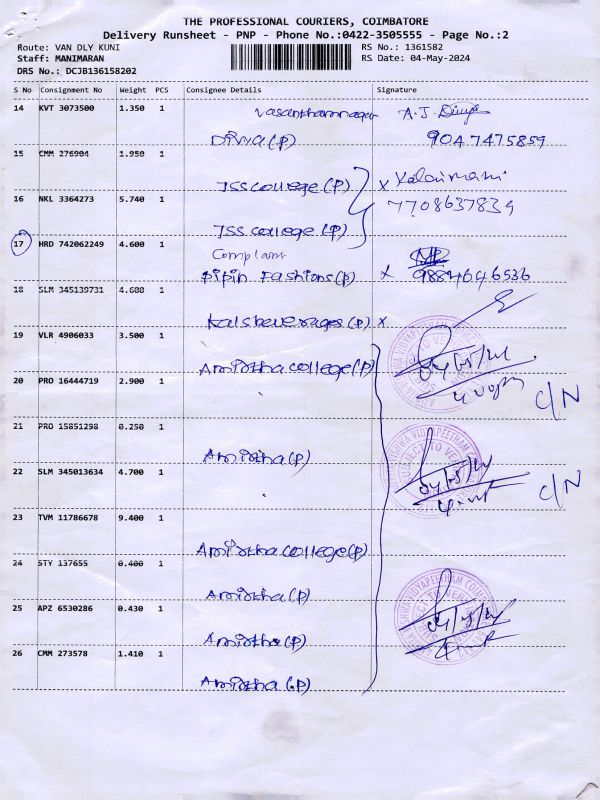 THE PROFESSIONAL COURIERS, COIMBATORE
Delivery Runsheet - PNP - Phone No.:0422-3505555 - Page No.:2
Route: VAN DLY KUNI
RS No.: 1361582
Staff: MANIMARAN
RS Date: 04-May-2024
DRS No.: DCJB136158202
S No Consignment No Weight PCS Consignee Details Signature
14 KVT 3073500 1.350 1 Vasanthamnagar
Divya (P) 9047475859
15 CMM 276904 1.950 1
JSS college (P) x Kalaimani
16 NKL 3364273 5.740 1 7708637839
JSS college (P)
17 HRD 742062249 4.600 1 Complaint
Pipin Fashions (P) x 9884646536
18 SLM 345139731 4.600 1
Kalsbeverages (P) x
19 VLR 4906033 3.500 1
Amirtha college (P)
20 PRO 16444719 2.900 1 C/N
21 PRO 15851298 0.250 1
Amirtha (P)
22 SLM 345013634 4.700 1 C/N
23 TVM 11786678 9.400 1
Amirtha college (P)
24 STY 137655 0.400 1
Amirtha (P)
25 APZ 6530286 0.430 1
Amirtha (P)
26 CMM 273578 1.410 1
Amirtha (P)